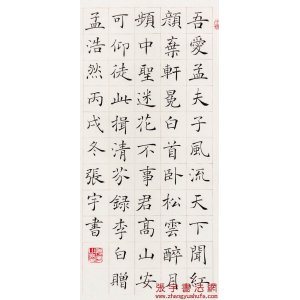 吾愛孟夫子風流天下聞紅
顏棄軒冕白首卧松雲醉月
頻中聖迷花不事君高山安
可仰徒此揖清芬錄李白贈
孟浩然丙戌冬張宇書
張宇書法網